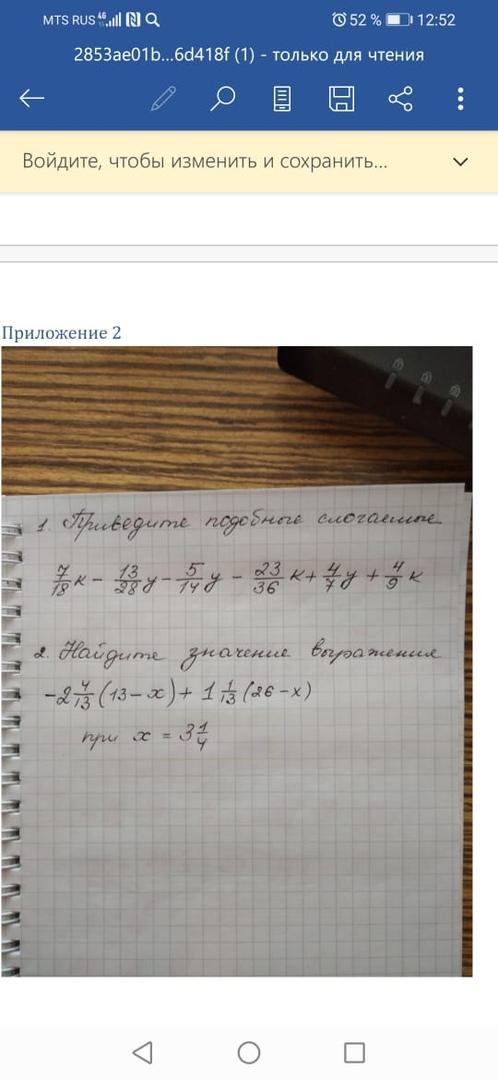 MTS RUS 4G 52 % 12:52
2853ae01b...6d418f (1) - только для чтения
Войдите, чтобы изменить и сохранить...
Приложение 2
1. Приведите подобные слагаемые
7/18 к - 13/28 y - 5/14 y - 23/36 к + 4/7 y + 4/9 к
2. Найдите значение выражения
-2 4/13 (13 - x) + 1 1/13 (26 - x)
при x = 3 1/4